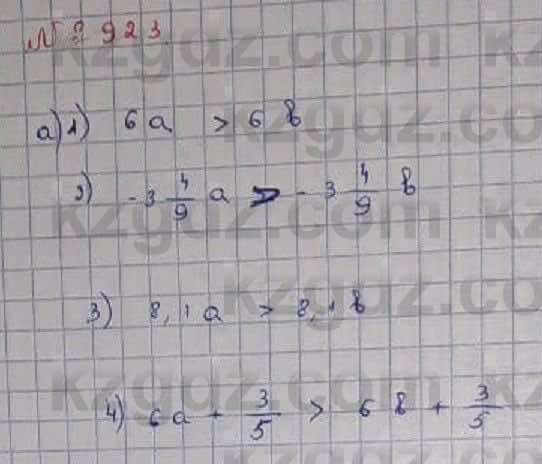 № 923.
а) 1) 6a > 6b
2) -3 4/9 a > -3 4/9 b
3) 8,1a > 8,1b
4) 6a + 3/5 > 6b + 3/5
kzgdz.com